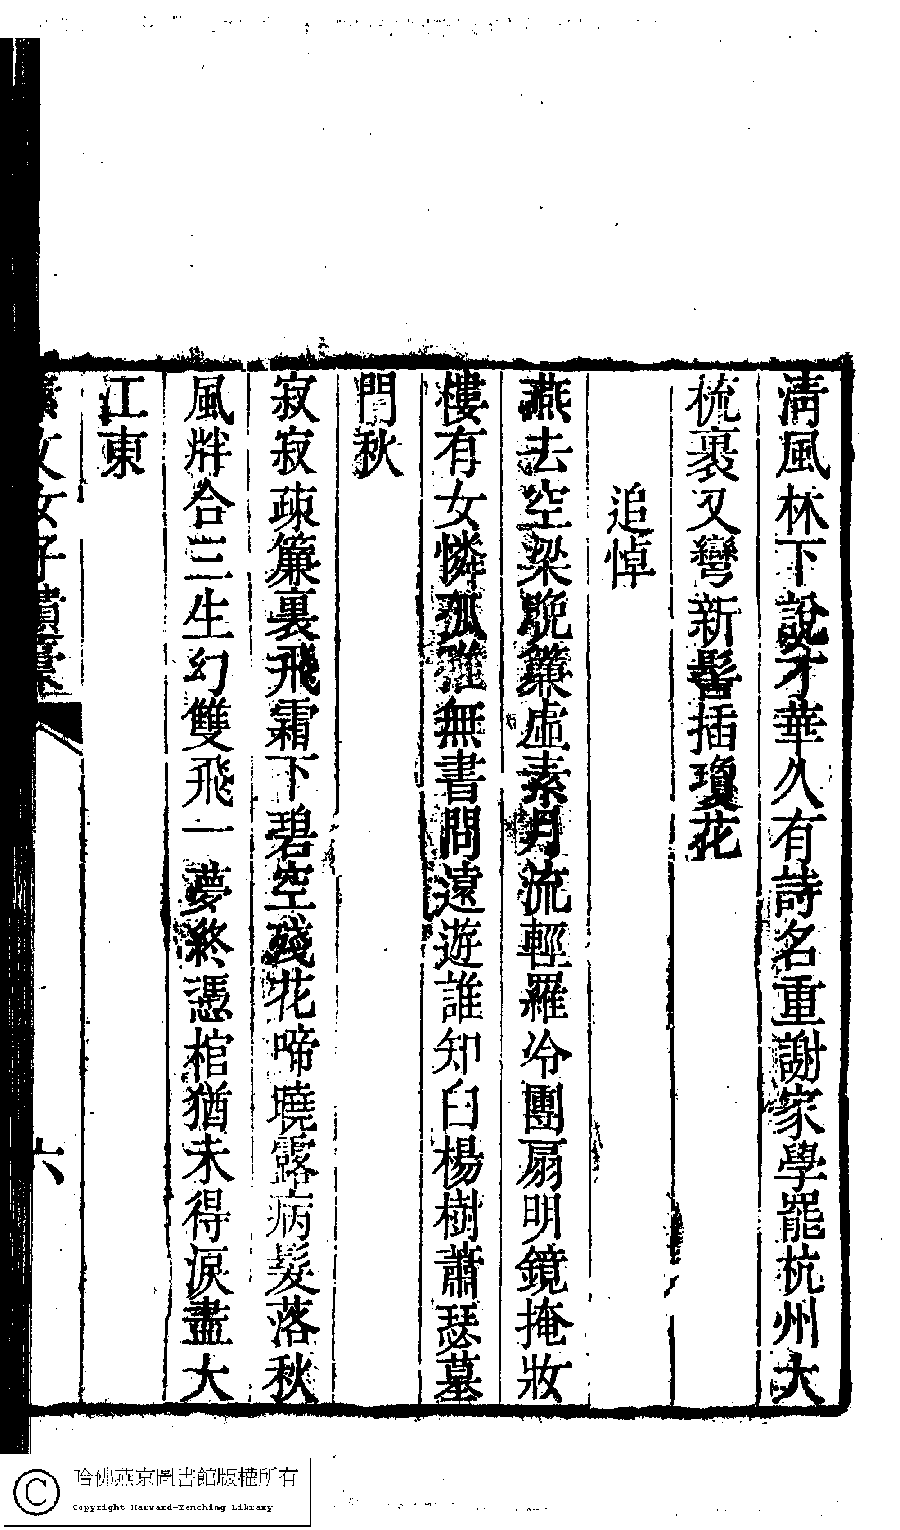 清風林下說才華久有詩名重謝家學罷杭州大
梳裹又彎新髻插瓊花
追悼
燕去空梁晩簾虛素月流輕羅冷團扇明鏡掩妝
樓有女憐孤稚無書問遠遊誰知白楊樹蕭瑟墓
門秋
寂寂疎簾裏飛霜下碧空殘花啼曉露病髮落秋
風牉合三生幻雙飛一夢終憑棺猶未得淚盡大
江東
素文女子遺稾
六
哈佛燕京圖書館版權所有
Copyright Harvard-Yenching Library